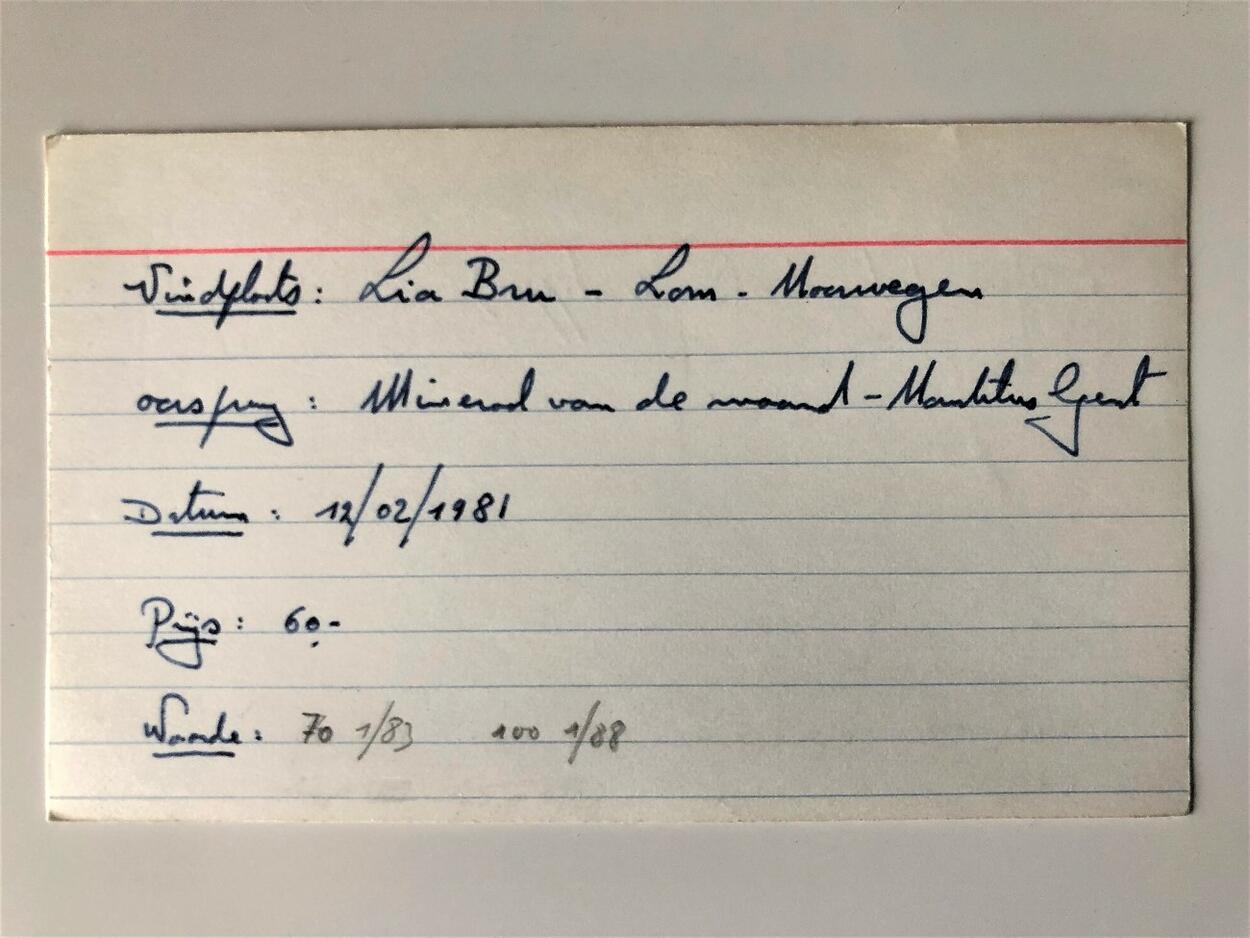 Vindplaats: Lia Bru - Lom - Noorwegen
oorsprong: Mineraal van de maand - Nautilus Gent
Datum: 12/02/1981
Prijs: 60.-
Waarde: 70 1/83 100 1/88